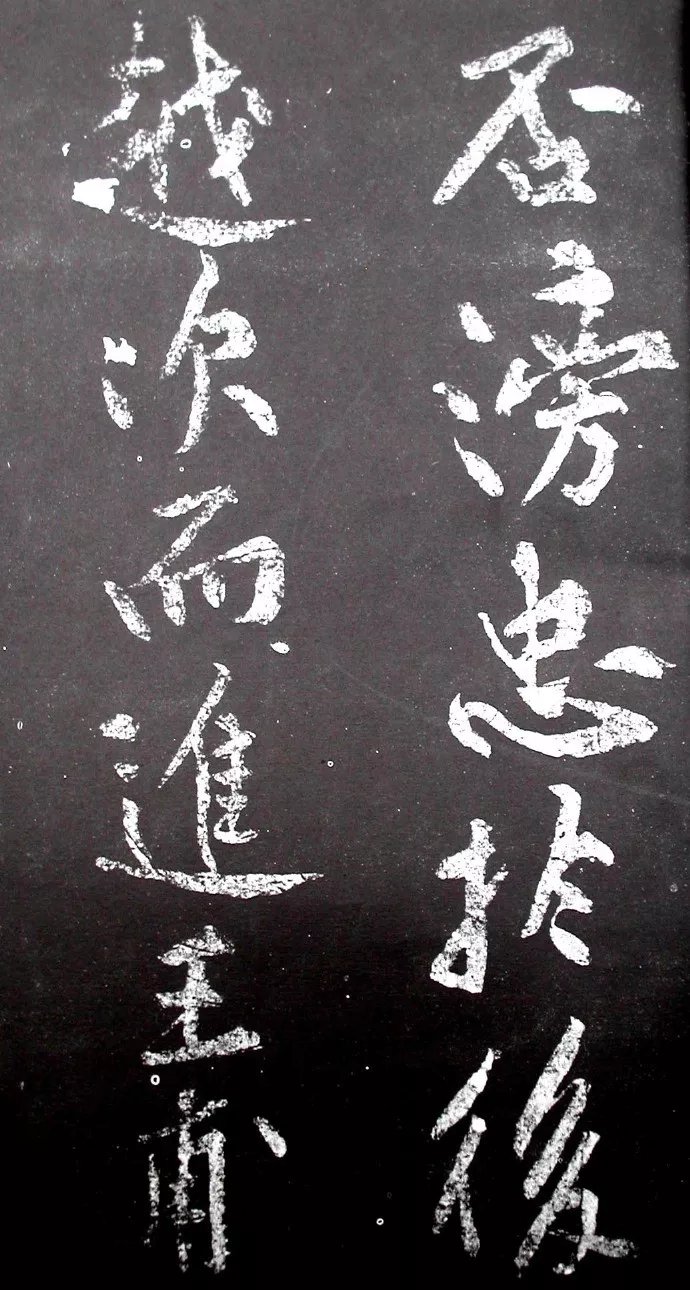 否滂患於後
越次而進王甫